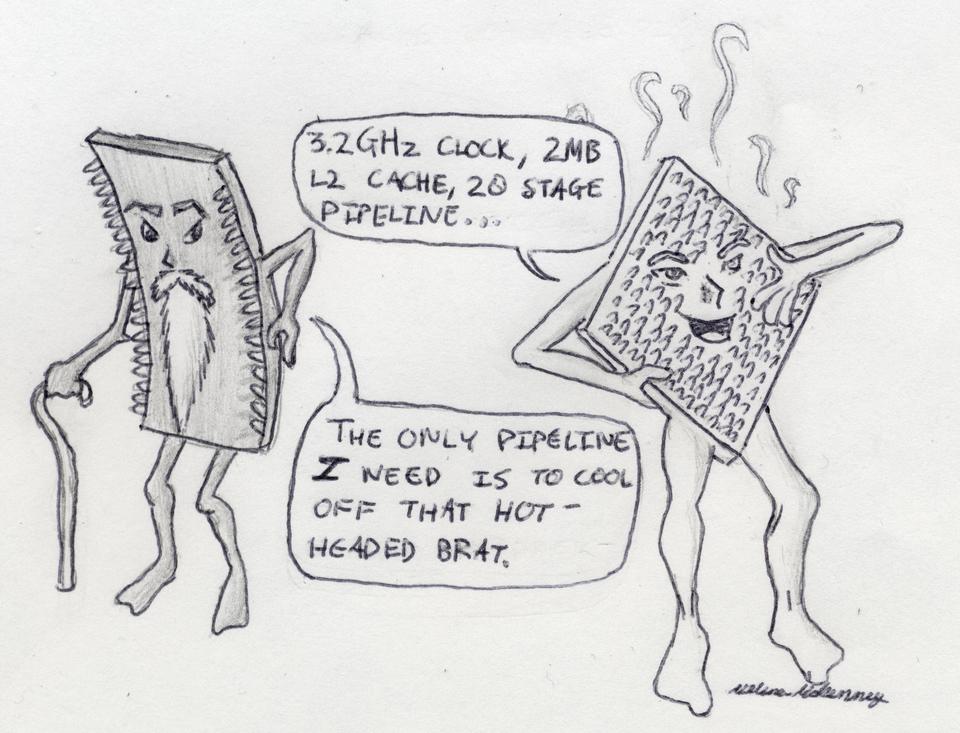 3.2GHz CLOCK, 2MB
L2 CACHE, 20 STAGE
PIPELINE...
THE ONLY PIPELINE
I NEED IS TO COOL
OFF THAT HOT-
HEADED BRAT.